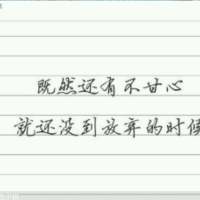 既然还有不甘心
就还没到放弃的时候